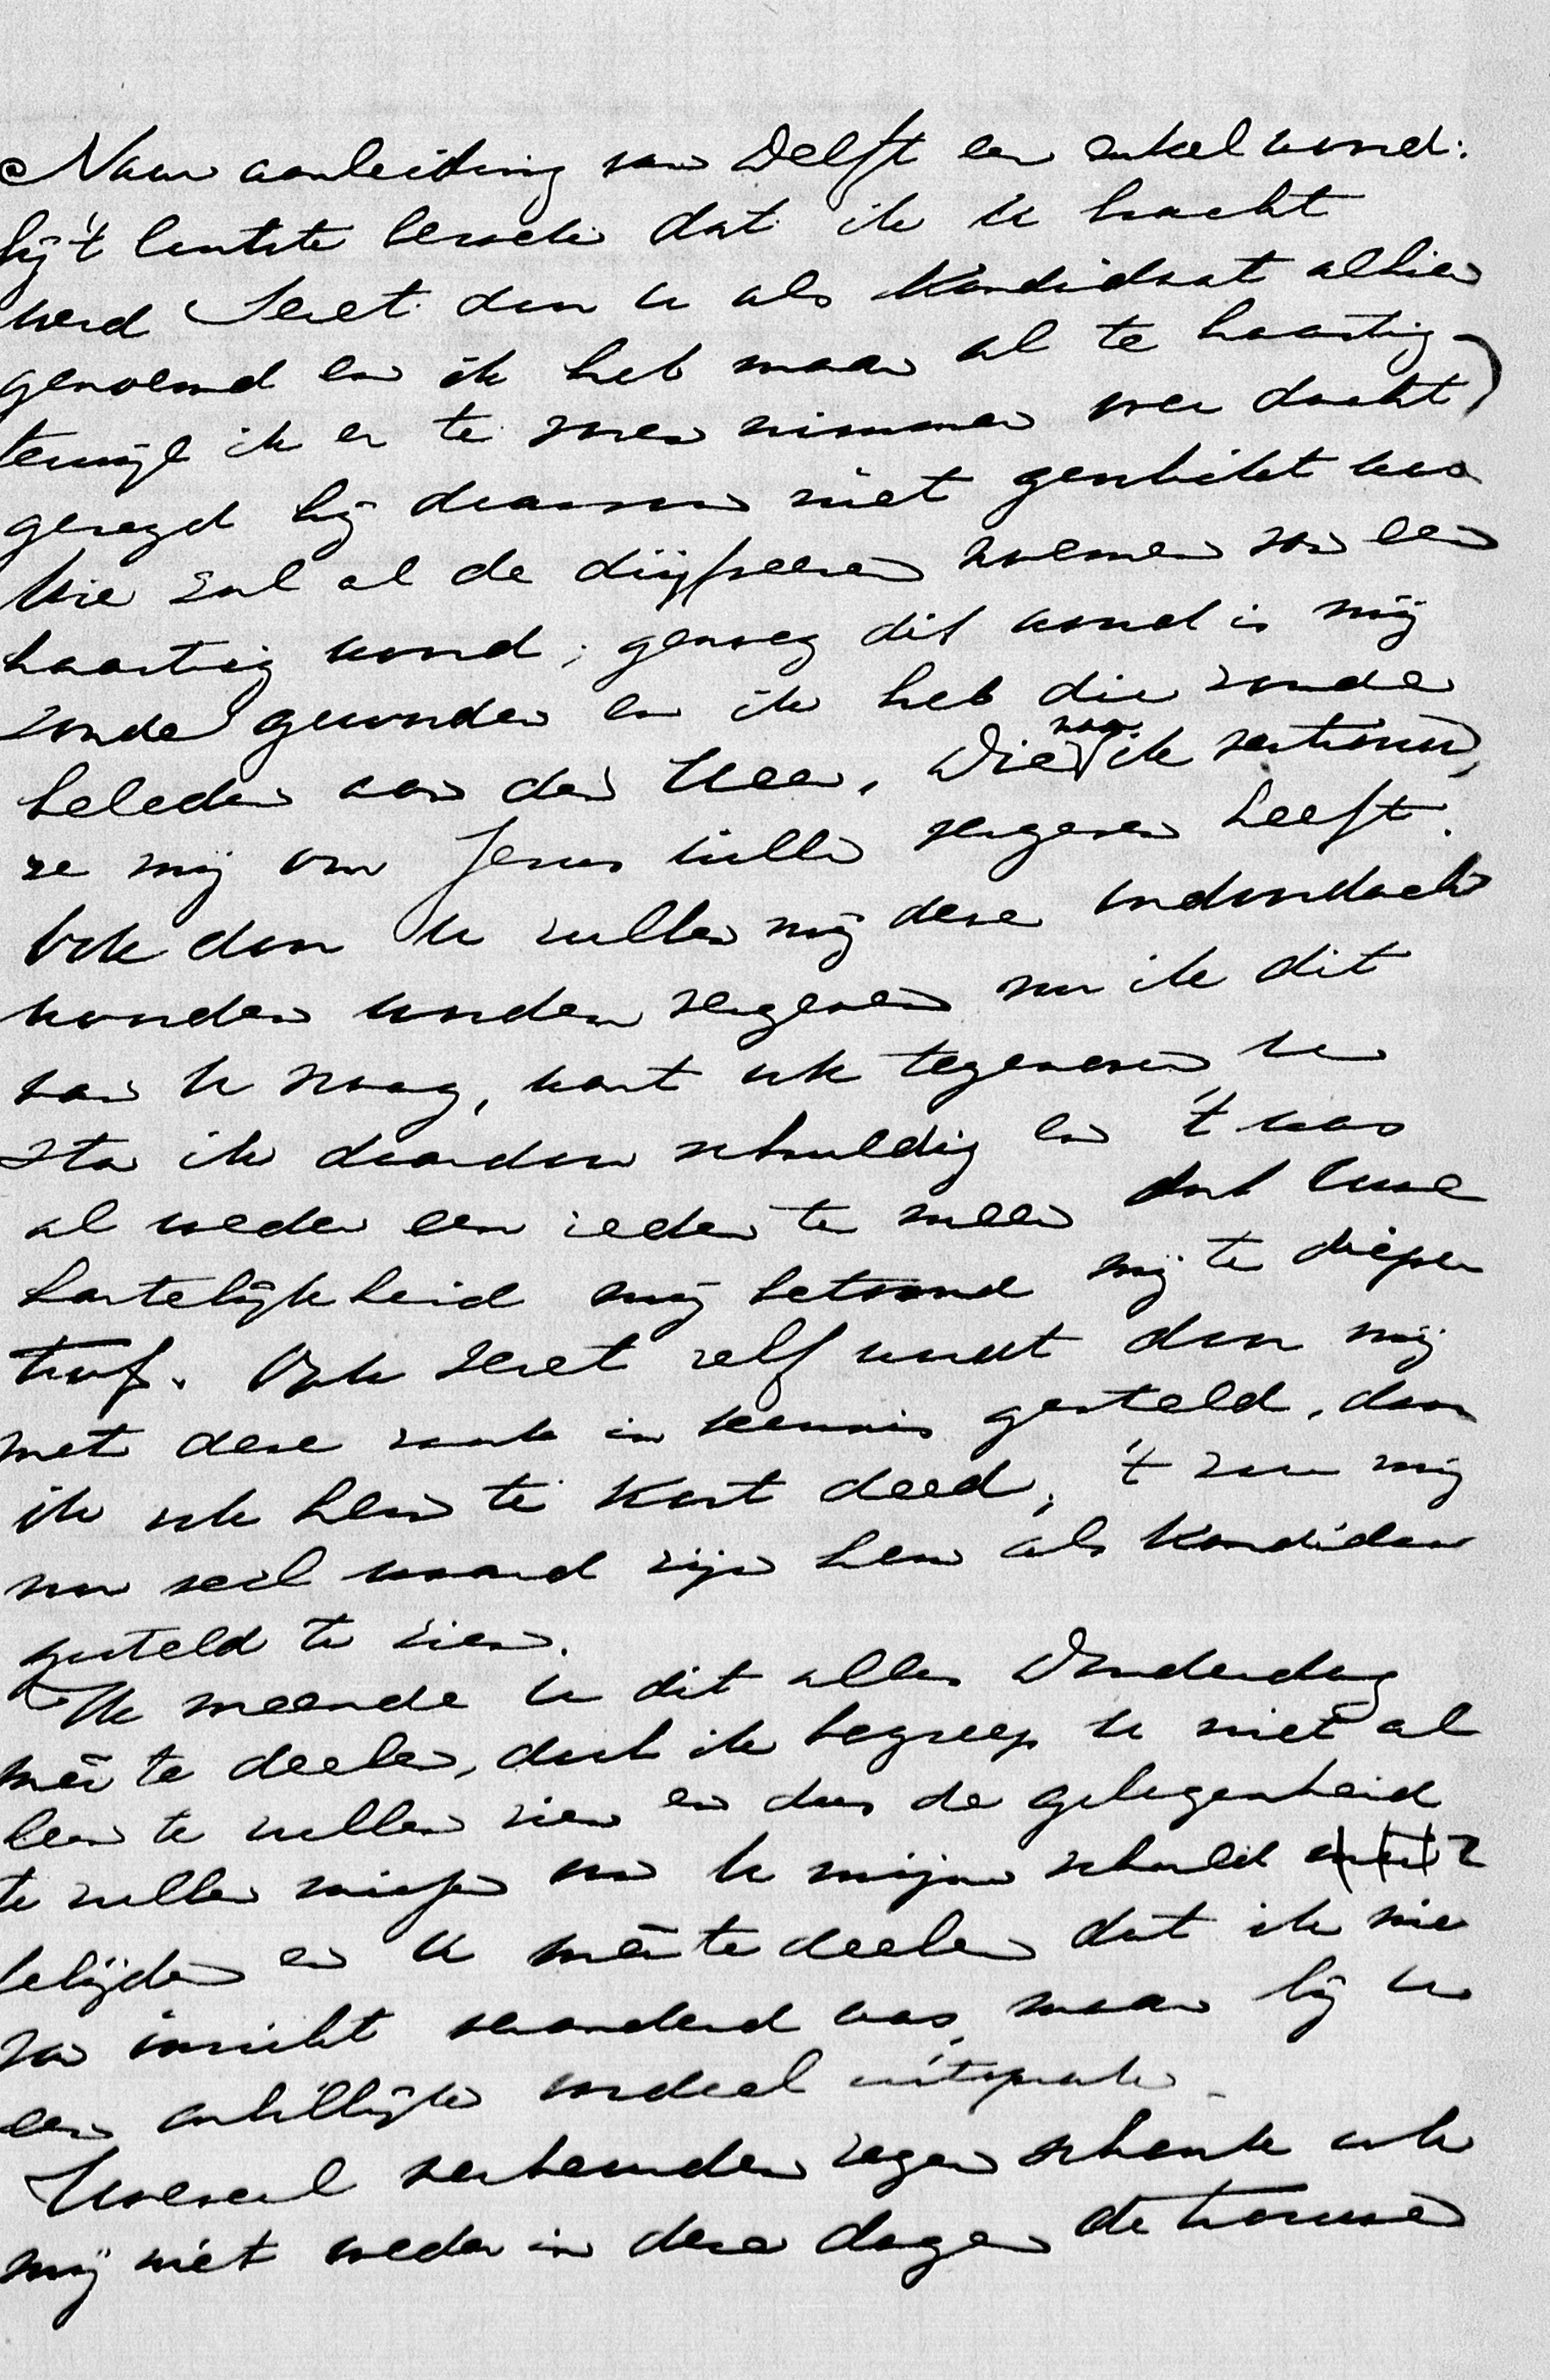 Naar aanleiding van Delft een enkel woord:
bij 't laatste bezoek dat ik U bracht
werd Seret door U als Kandidaat alhier
genoemd en ik heb maar al te haastig
terwijl ik er te voren nimmer over dacht)
gezegd hij daarvoor niet geschikt was
Wie zal al de drijfveeren noemen van een
haastig woord; genoeg dit woord is mij
zonde geworden en ik heb die zonde
beleden aan den Heer, Die naar ik vertrouw,
ze mij om Jezus wille vergeven heeft.
Ook door U zullen mij deze ondoordachte
woorden worden vergeven nu ik dit
van U vraag, want ook tegenover U
sta ik daardoor schuldig en 't was
al weder een reden te meer dat Uwe
hartelijkheid mij betoond mij te dieper
trof. Ook Seret zelf werdt door mij
met deze zaak in kennis gesteld, daar
ik ook hem te kort deed; 't zou mij
nu veel waard zijn hem als Kandidaat
gesteld te zien.
Ik meende U dit alles Donderdag
mêe te deelen, doch ik begreep U niet al
leen te zullen zien en dus de gelegenheid
te zullen missen om U mijne schuld te
belijden en U mêe te deelen dat ik nie
van inzicht veranderd was, maar bij U
een onbillijk oordeel uitsprak.
Hoeveel verbeurden zegen schonk ook
mij niet weder in deze dagen de trouwe